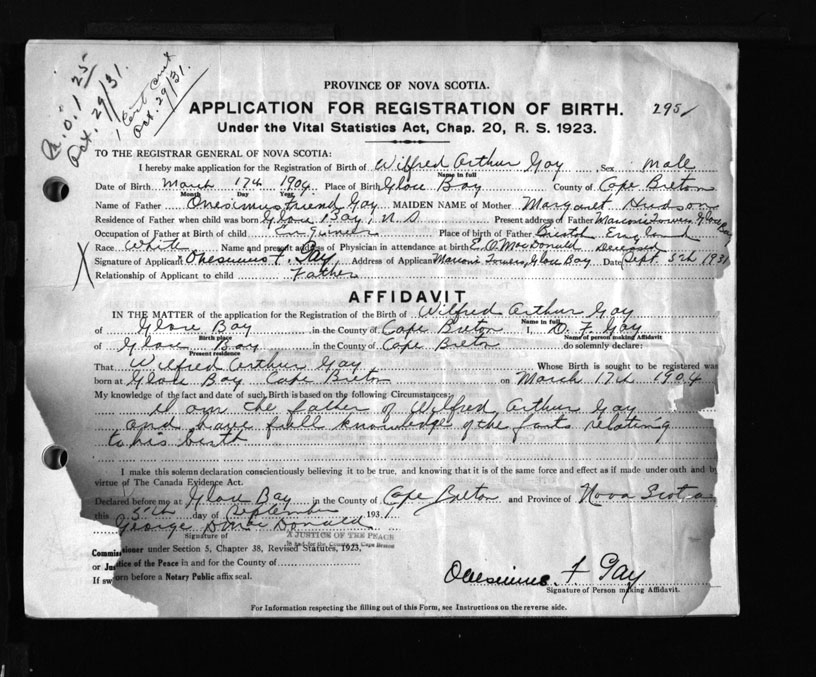 R.O.1 25
Oct. 29/31.
1 Cert
Oct. 29/31
PROVINCE OF NOVA SCOTIA.
APPLICATION FOR REGISTRATION OF BIRTH. 295/
Under the Vital Statistics Act, Chap. 20, R. S. 1923.
TO THE REGISTRAR GENERAL OF NOVA SCOTIA:
I hereby make application for the Registration of Birth of Wilfred Arthur Gay, Sex male
Name in full
Date of Birth March 17th 1904 Place of Birth Glace Bay County of Cape Breton
Month Day Year
Name of Father Onesimus Friend Gay MAIDEN NAME of Mother Margaret Hudson
Residence of Father when child was born Glace Bay, N S Present address of Father Marconi Towers, Glace Bay
Occupation of Father at Birth of child Enginner Place of birth of Father Bristol England
Race White Name and present address of Physician in attendance at birth E. O. MacDonald Deceased
X Signature of Applicant Onesimus F. Gay Address of Applicant Marconi Towers, Glace Bay Date Sept. 5th 1931
Relationship of Applicant to child Father
AFFIDAVIT
IN THE MATTER of the application for the Registration of the Birth of Wilfred Arthur Gay
Name in full
of Glace Bay in the County of Cape Breton I, O. F. Gay
Birth place Name of person making Affidavit
of Glace Bay in the County of Cape Breton do solemnly declare:
Present residence
That Wilfred Arthur Gay Whose Birth is sought to be registered was
born at Glace Bay Cape Breton on March 17th 1904
My knowledge of the fact and date of such Birth is based on the following Circumstances:
I am the father of Wilfred Arthur Gay
and have full knowledge of the facts relating
to his birth
I make this solemn declaration conscientiously believing it to be true, and knowing that it is of the same force and effect as if made under oath and b
virtue of The Canada Evidence Act.
Declared before me at Glace Bay in the County of Cape Breton and Province of Nova Scotia
this 5th day of September 1931
George D. MacDonald
Signature of A JUSTICE OF THE PEACE
In and for the County of Cape Breton
Commissioner under Section 5, Chapter 38, Revised Statutes, 1923,
or Justice of the Peace in and for the County of
If sworn before a Notary Public affix seal.
Onesimus F Gay
Signature of Person making Affidavit.
For Information respecting the filling out of this Form, see Instructions on the reverse side.